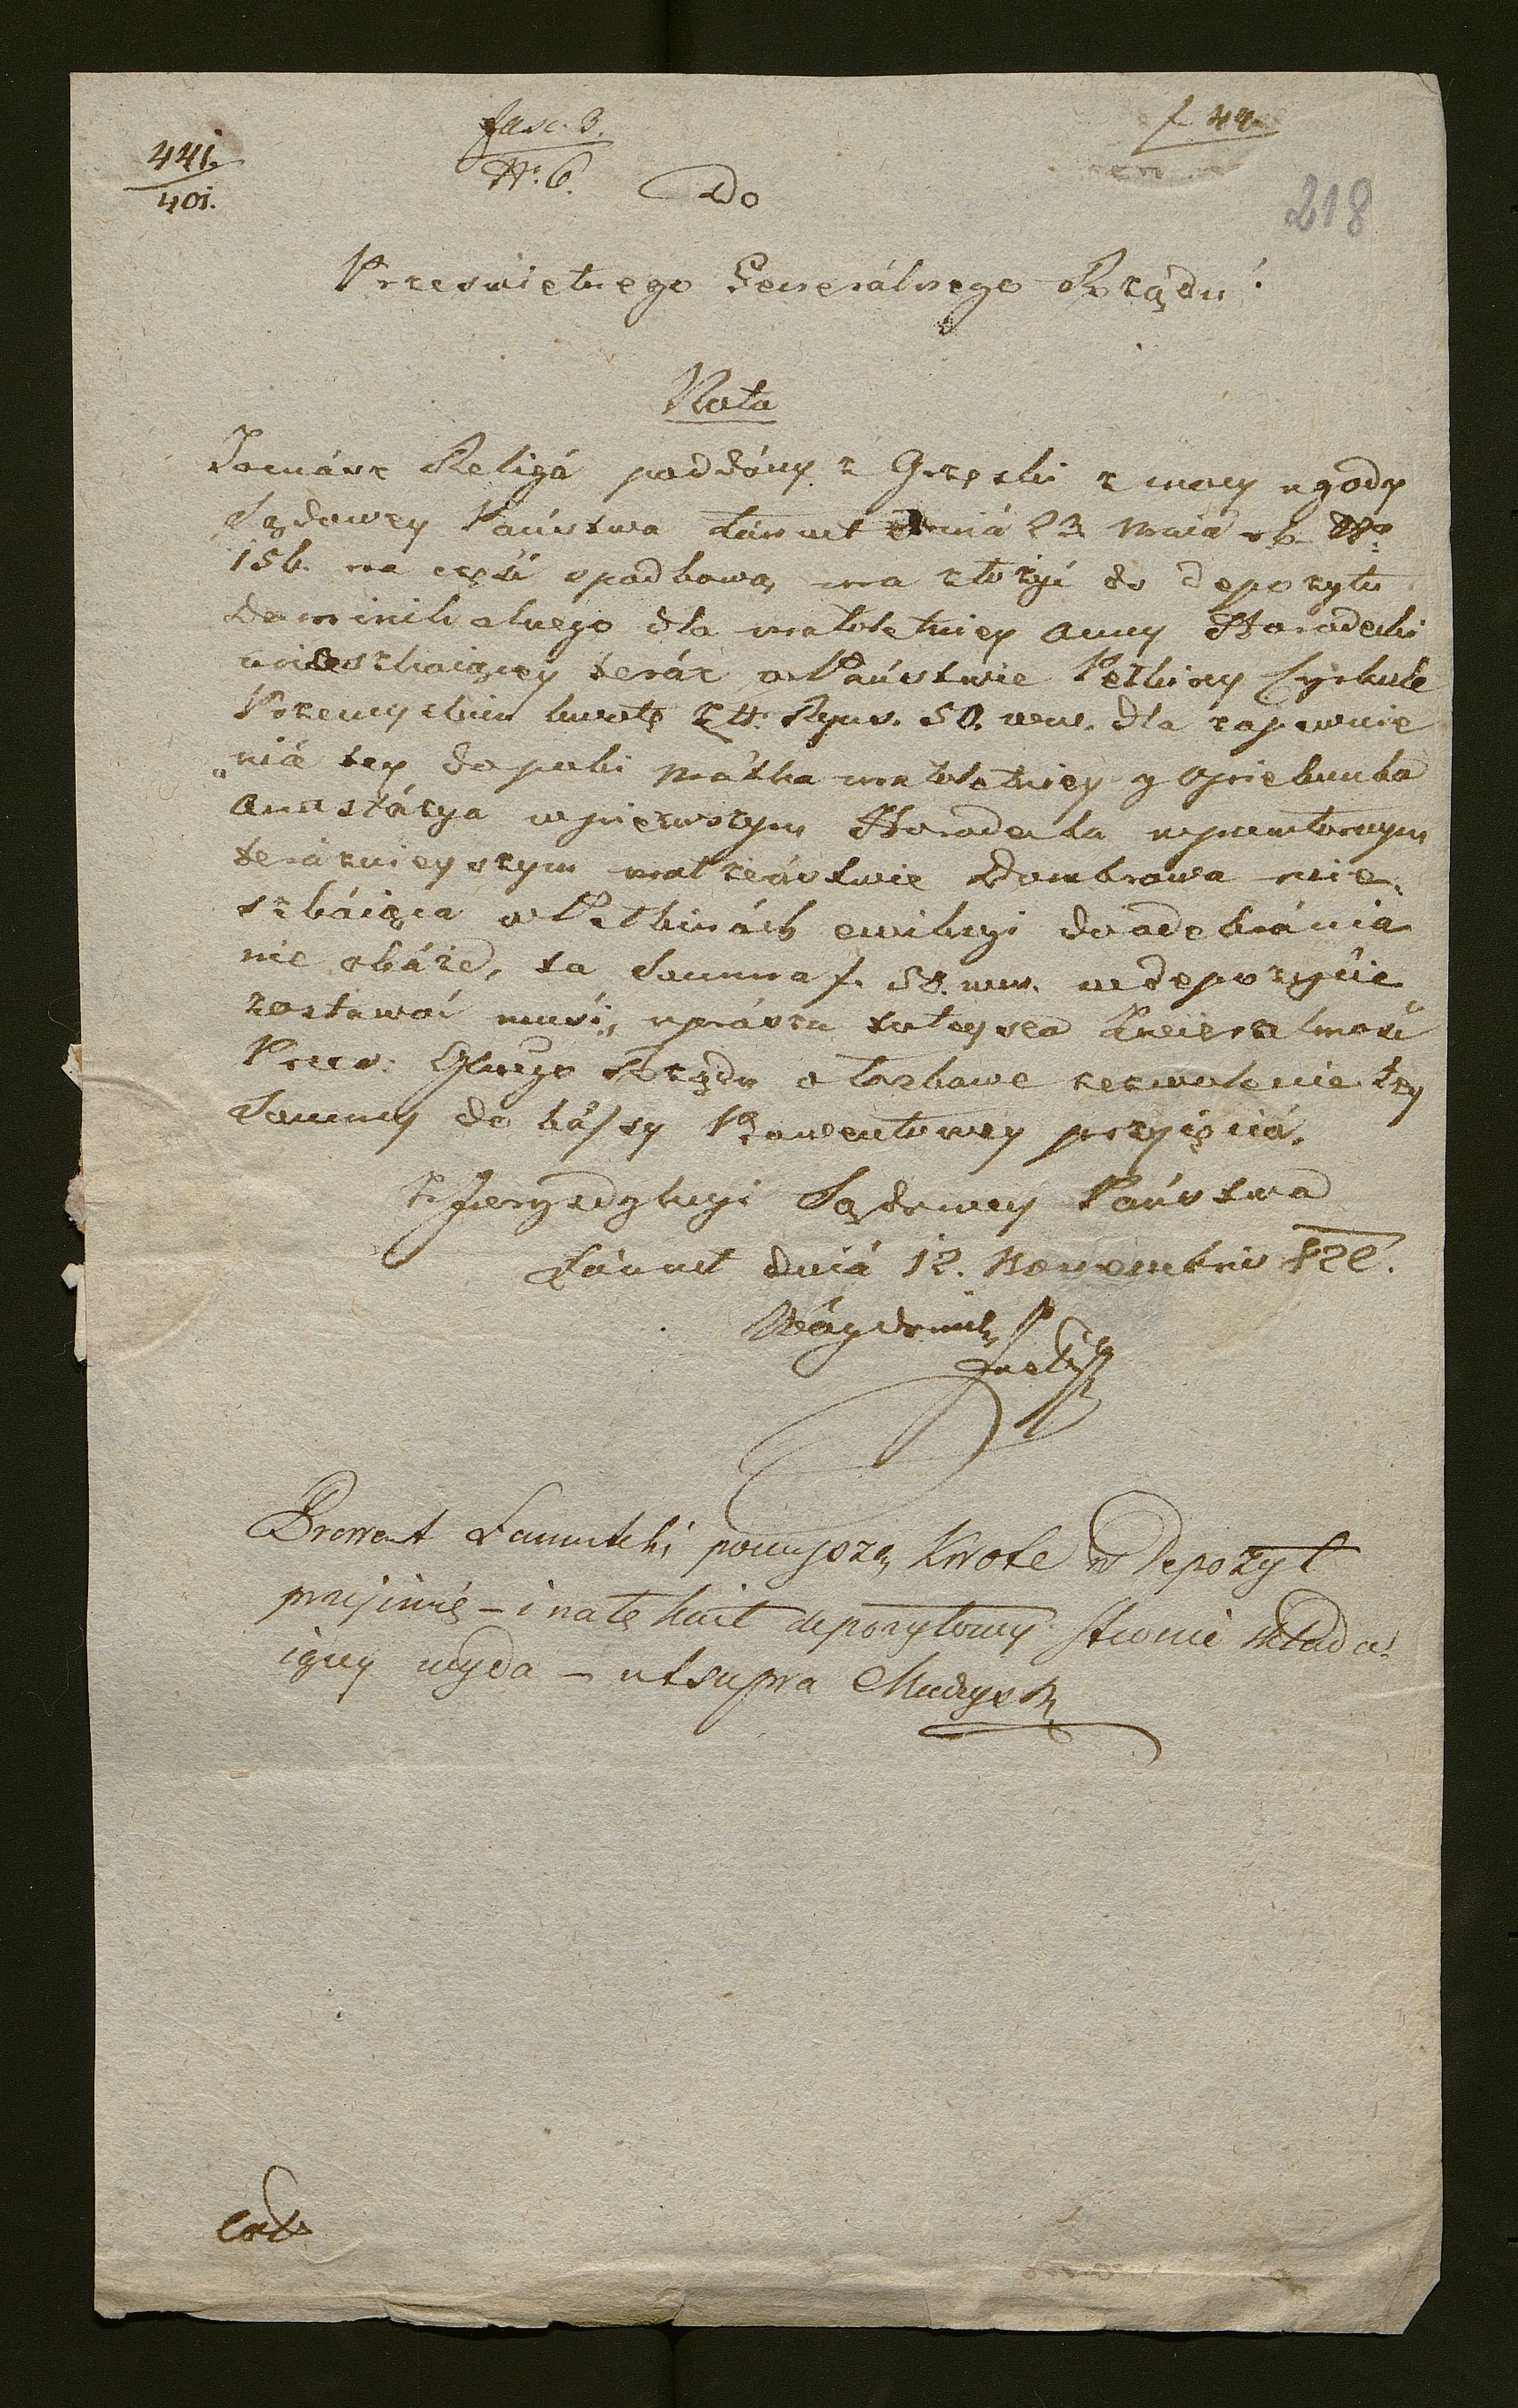 441.
401.
fasc. 3.
Nr. 6.
f 44
218
Do
Prześwietnego Generálnego Rządu!
Nota
Tomász Religá poddány z Grzęski z mocy ugody
Sądowey Państwa Łańcut dniá 23 Maiá rb. Nro
156. na część spadkową ma złożyć do depozytu
dominikalnego dla małoletniey Anny Horodecki
mieszkaiącey teráz w Państwie Pełkiny Cyrkule
Przemyskim kwotę Zł. Ryns. 50. ww. dla zapewnie
„niá tey dopoki Mátka małoletniey y opiekunka
Anastázya w pierwszym Horodecka w powtornym
teráznieyszym małżeństwie Dombrowa mie„
szkáiąca w Pełkinách ewikcyi do odebránia
nie okáże, ta Summa f. 50. ww. w depozycie
zostawáć musi„ uprásza tuteysza Zwierzchność
Prześ: Glnego Rządu o łaskawe zezwolenie tey
Summy do kássy Prowentowey przyięciá.
Z Jurysdykcyi Sądowey Państwa
Łáncut dniá 12. Novembris 822.
Prowent Łancutski powyższą Kwotę w depozyt
przyimie – i na tę kwit depozytowy Stronie składa¡
iącey wyda – ut supra